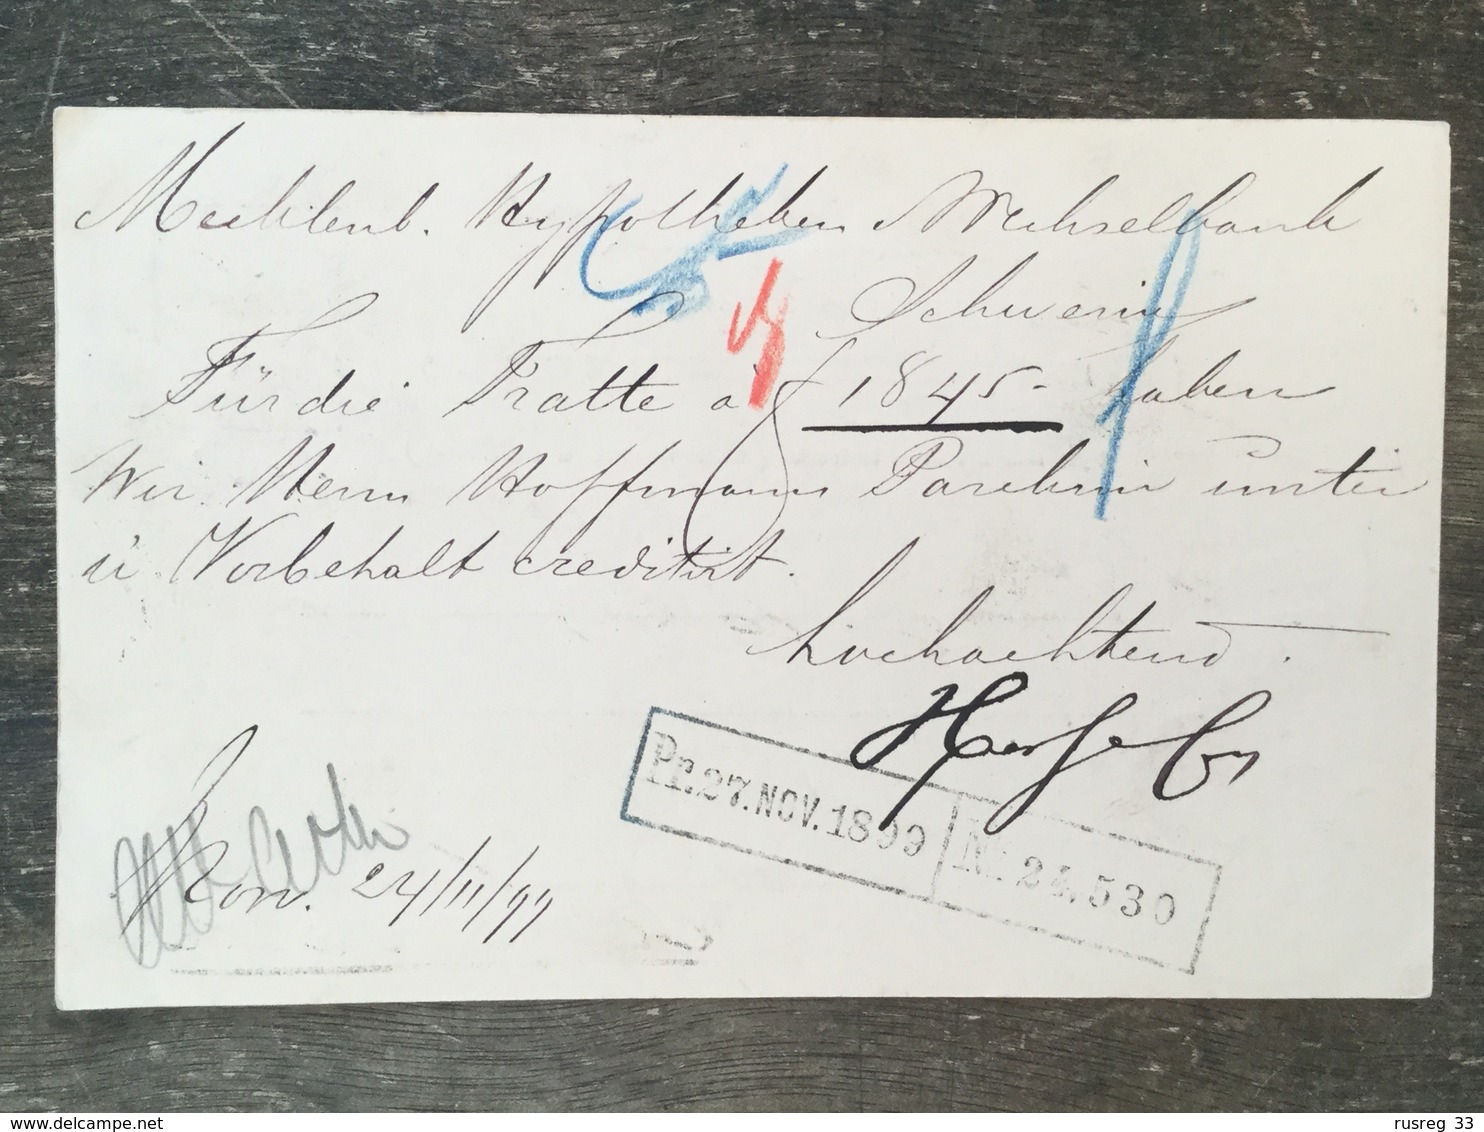 Mecklenb. Hypotheken u Wechselbank
Schwerin
Für die Tratte a 1845.- haben
Wir Herrn Hoffmann Parchim unter
ü Vorbehalt creditirt.
hochachtend.
Pr. 27. NOV. 1899 No. 24,530
24/11/99
rusreg 33